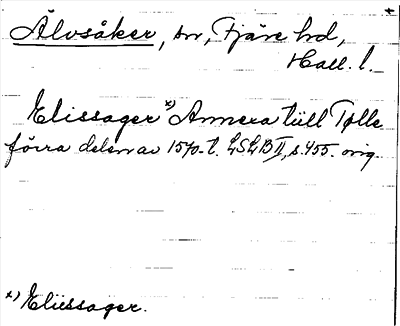 Älvsåker, sn, Fjäre hd,
Hall. l.
Elissager *) Annexa tiill Tølle
förra delen av 1570-t. LSLB II, s. 455. orig.
*) Eliessager.